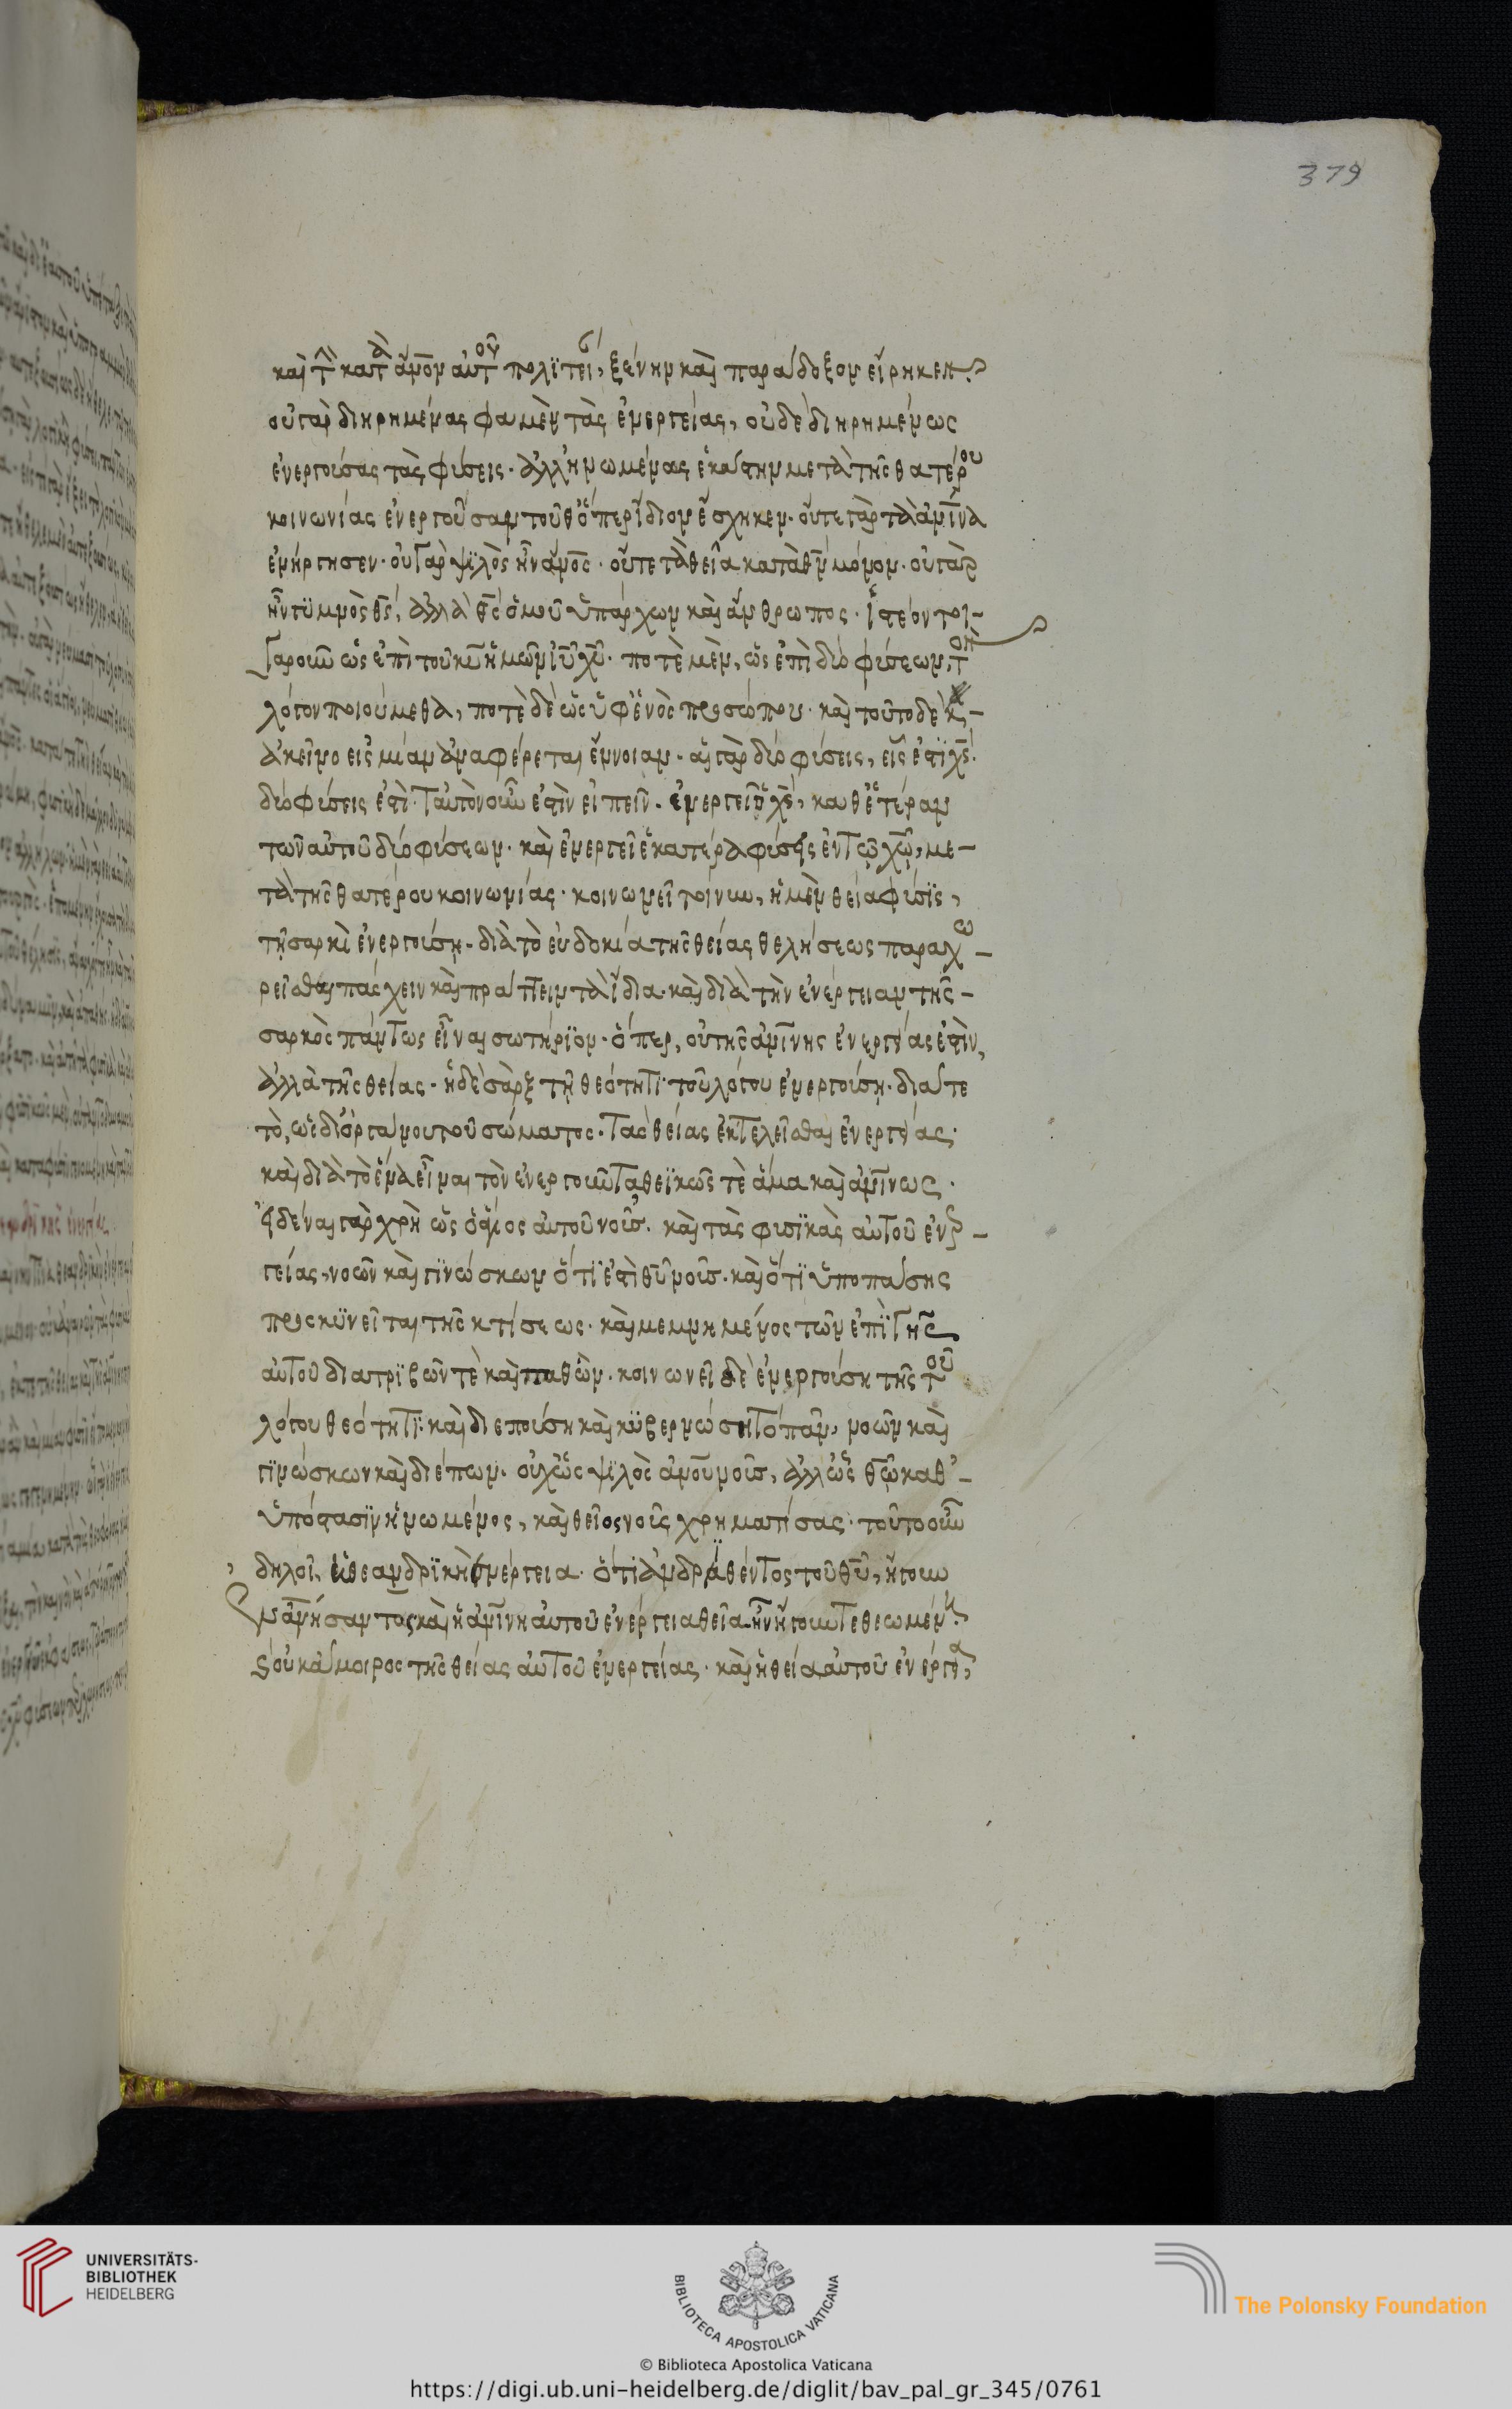 379
καὶ τὴν κατὰ ἄνον αὐτοῦ πολϊτείαν, ξένην καὶ παράδοξον εἴρηκεν.
οὐ γὰρ διηρημένας φαμὲν τὰς ἐνεργείας, οὐδὲ διηρημένως
ἐνεργούσας τὰς φύσεις. ἀλλ' ἡνωμένας ἑκάστην μετὰ τῆς θατέρου
κοινωνίας ἐνεργοῦσαν τοῦθ' ὅπερ ἴδιον ἔσχηκεν. οὔτε γὰρ τὰ ἀνΐνα
ἐνήργησεν. οὐ γὰρ ψϊλὸς ἦν ἄνος. οὔτε τὰ θεῖα κατὰ θν μόνον. οὐ γὰρ
ἦν γϋμνὸς θς, ἀλλὰ θς ὁμοῦ ὑπάρχων καὶ ἄνθρωπος. ἰστέον τοι-
γαροῦν ὡς ἐπὶ τοῦ κυ ἡμῶν ιυ χυ. ποτὲ μὲν, ὡς ἐπὶ δύο φύσεων, τὸν
λόγον ποιούμεθα, ποτὲ δὲ ὡς ὑφ' ἑνὸς προσώπου. καὶ τοῦτο δὲ κ-
ἀκεῖνο εἰς μίαν ἀναφέρεται ἔννοιαν. αἱ γὰρ δύο φύσεις, εἷς ἐστϊ χς.
δύο φύσεις ἐστὶ. ταὐτὸν οὖν ἐστὶν εἰπεῖν. ἐνεργεῖ ὁ χς, καθ' ἑτέραν
τῶν αὐτοῦ δύο φύσεων. καὶ ἐνεργεῖ ἑκατέρα φύσις ἐν τῷ χῷ, με-
τὰ τῆς θατέρου κοινωνίας. κοινωνεῖ τοίνυν, ἡ μὲν θεία φύσϊς,
τῇ σαρκὶ ἐνεργούσῃ. διὰ τὸ εὐδοκία τῆς θείας θελήσεως παραχω-
ρεῖσθαι πάσχειν καὶ πράττειν τὰ ἴδια. καὶ διὰ τὴν ἐνέργειαν τῆς-
σαρκὸς πάντως εἶναι σωτήρϊον. ὅπερ, οὐ τῆς ἀνΐνης ἐνεργείας ἐστὶν,
ἀλλὰ τῆς θείας. ἡ δὲ σὰρξ τῇ θεότητϊ τοῦ λόγου ἐνεργούσῃ. διά τε
τὸ, ὡς δι' ὀργάνου τοῦ σώματος. τὰς θείας ἐκτελεῖσθαι ἐνεργείας.
καὶ διὰ τὸ ἕνα εἶναι τὸν ἐνεργοῦντα θεϊκῶς τὲ ἅμα καὶ ἀνΐνως.
εἰδέναι γὰρ χρὴ ὡς ὁ ἅγιος αὐτοῦ νοῦς. καὶ τὰς φυσϊκὰς αὐτοῦ ἐνερ-
γείας, νοῶν καὶ γϊνώσκων ὅτϊ ἐστὶ θυ νοῦς. καὶ ὅτϊ ὑπὸ πάσης
προσκϋνεῖται τῆς κτίσεως. καὶ μεμνημένος τῶν ἐπῒ γῆς
αὐτοῦ διατρϊβῶν τὲ καὶ παθῶν. κοινωνεῖ δὲ ἐνεργούσῃ τῆς τοῦ
λόγου θεότητϊ. καὶ διεπούσῃ καὶ κϋβερνώσῃ τὸ πᾶν, νοῶν καὶ
γϊνώσκων καὶ διέπων. οὐχ ὡς ψϊλὸς ἀνου νοῦς, ἀλλ' ὡς θῶ καθ'-
ὑπόστασϊν ἡνωμένος, καὶ θεῖος νοῦς χρηματίσας. τοῦτο οὖν
δηλοῖ, ἡ θεανδρϊκὴ ἐνέργεια. ὅτϊ ἀνδρωθέντος τοῦ θυ, ἤγουν
ἐνανήσαντος καὶ ἡ ἀνΐνη αὐτοῦ ἐνέργεια θεία ἦν ἤγουν τεθεωμένη.
καὶ οὐκ ἄμοιρος τῆς θείας αὐτοῦ ἐνεργείας. καὶ ἡ θεία αὐτοῦ ἐνέργεια,
UNIVERSITÄTS-
BIBLIOTHEK
HEIDELBERG
BIBLIOTECA APOSTOLICA VATICANA
The Polonsky Foundation
© Biblioteca Apostolica Vaticana
https://digi.ub.uni-heidelberg.de/diglit/bav_pal_gr_345/0761